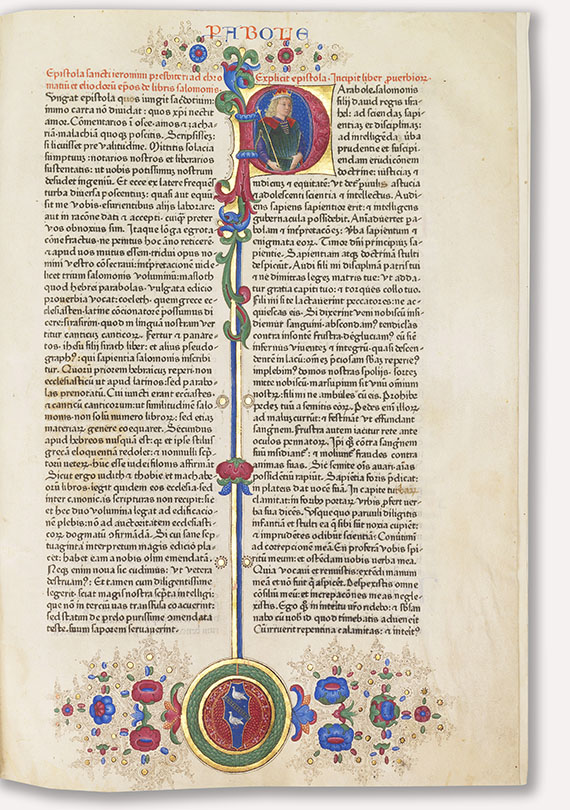 PABOLE
Epistola sancti ieronimi presbiteri ad chro
matiu et eliodoru epos de libris salomonis
Iungat epistola quos iungit sacdotium:
immo carta non diuidat: quos xpi nectit
amor. Comentarios i osee. amos & zacha
riā. malachiā quoqz poscitis. Scripsissez:
si licuisset pre valitudine. Mittitis solacia
sumptuuz: notarios nostros et librarios
sustentatis: ut uobis potissimuz nostrum
desudet ingeniū. Et ecce ex latere frequēs
turba diuersa poscentiuz: quasi aut equū
sit me vobis esurientibus alijs laborare:
aut in racōne dati & accepti. cuiqz preter
vos obnoxius sim. Itaqz lōga egrotati
cōne fractus: ne penitus hoc āno reticerē
& apud uos mutus essem: tridui opus no
mini vestro cōsecraui: interpretacōnē uide
licet trium salomonis voluminū: masloth
quod hebrei parabolas. vulgata edicio
proverbia vocat: coeleth. quem grece ec
clesiasten. latine cōcionatorē possumus di
cere: sirasirim. quod in lingua nostram ver
titur canticuz canticorz. Fertur & panare
tos. ihū filij sirach liber: et alius pseudo
graphꝰ: qui sapientia salomonis inscribi
tur. Quorū priorem hebraicuz reperi. non
ecclesiasticū ut apud latinos: sed parabo
las prenotatū. Cui iuncti erant ecclastes
& canticū canticorum: ut similitudinē salo
monis. non solū numero librorz: sed etiaz
materiarz genere coequaret. Secundus
apud hebreos nusquā est: qz et ipse stilus
grecā eloquentiā redolet: & nonnulli scp
torū veterz. hūc esse iudei filonis affirmāt
Sicut ergo iudith & thobie et machabe
orū libros. legit quidem eos ecclesia. sed
inter canonicas scripturas non recipit: sic
et hec duo volumina legat ad edificacio
nē plebis: nō ad auctoritatem ecclesiasti
corz dogmatū ofirmandā. Si cui sane sep
tuaginta interpretum magis edicio pla
cet: habet eam a nobis olim emendatā.
Neqz enim noua sic cudimus: ut vetera
destruamꝰ. Et tamen cum diligentissime
legerit. sciat magis nostra scpta intelligi:
que nō in terciū uas transfusa coacuerint:
sed statim de prelo purissime omendata
teste. suum saporem seruauerint.
Explicit epistola. Incipit liber puerbiorz
Parabole. salomonis
filij dauid regis isra
hel: ad sciendaz sapi
entiaz et disciplinaz:
ad intelligēda vba
prudentie et suscipi
endam eruditiōnem
doctrine: iusticiaz &
iudiciuz & equitatē: vt detur puulis astucia
& adolescenti scientia & intellectus. Audi
ens sapiens sapientior erit: & intelligens
gubernacula possidebit. Aniaduertet pa
bolam & interpretacōez: vba sapientum &
enigmata eorz. Timor dni principiuz sa
pientie. Sapientiam atqz doctrinā stulti
despiciūt. Audi fili mi disciplinā p̄ris tui
& ne dimittas legez matris tue: vt adda
tur gratia capiti tuo: & torques collo tuo.
Fili mi si te lactauerint peccatores: ne ac
quiescas eis. Si dixerint veni nobiscū. insi
diemur sanguini. abscondamꝰ tendiclas
contra insontē frustra. degluciamꝰ eū sic
infernus viuentez & integrū. quasi descen
dentē in lacū: omēz p̄ciosam sbāz reperieꝰ
implebimꝰ domos nostras spolijs. sortez
mitte nobiscū. marsupiū sit vnū omnium
nostrz: fili mi ne ambules cū eis. Prohibe
pedez tuū a semitis eorz. Pedes enī illorz
ad maluz currūt: & festināt vt effundant
sangnē. Frustra autem iacitur rete ante
oculos pennatorz. Ipi qz cōtra sangnē
suū insidiātꝰ: & moliunt fraudes contra
animas suas. Sic semite ois auari. aias
possidentiū rapiūt. Sapientia foris p̄dicat:
in plateis dat vocē suā. In capite turbarz
clamitat: in foribz portarz vrbis. pfert ver
ba sua dicēs. Vsquequo paruuli diligitis
infantiā et stulti ea q̄ sibi sūt noxia cupiēt:
& imprudētes odibūt scientiā: Conutimi
ad correpcionē meā. En proferā vobis spi
ritū meum: et ostēdam uobis uerba mea.
Quia vocaui et rennuistis: extēdi manum
meā et nō fuit q̄ aspicēt. Despexistis omne
cōsiliū meū: et increpacōnes meas negle
xistis. Ego qz in interitu uro ridebo: & sbsan
nabo cū uob id quod timebatis aduenerit
Cū irruerit repentina calamitas: & interit